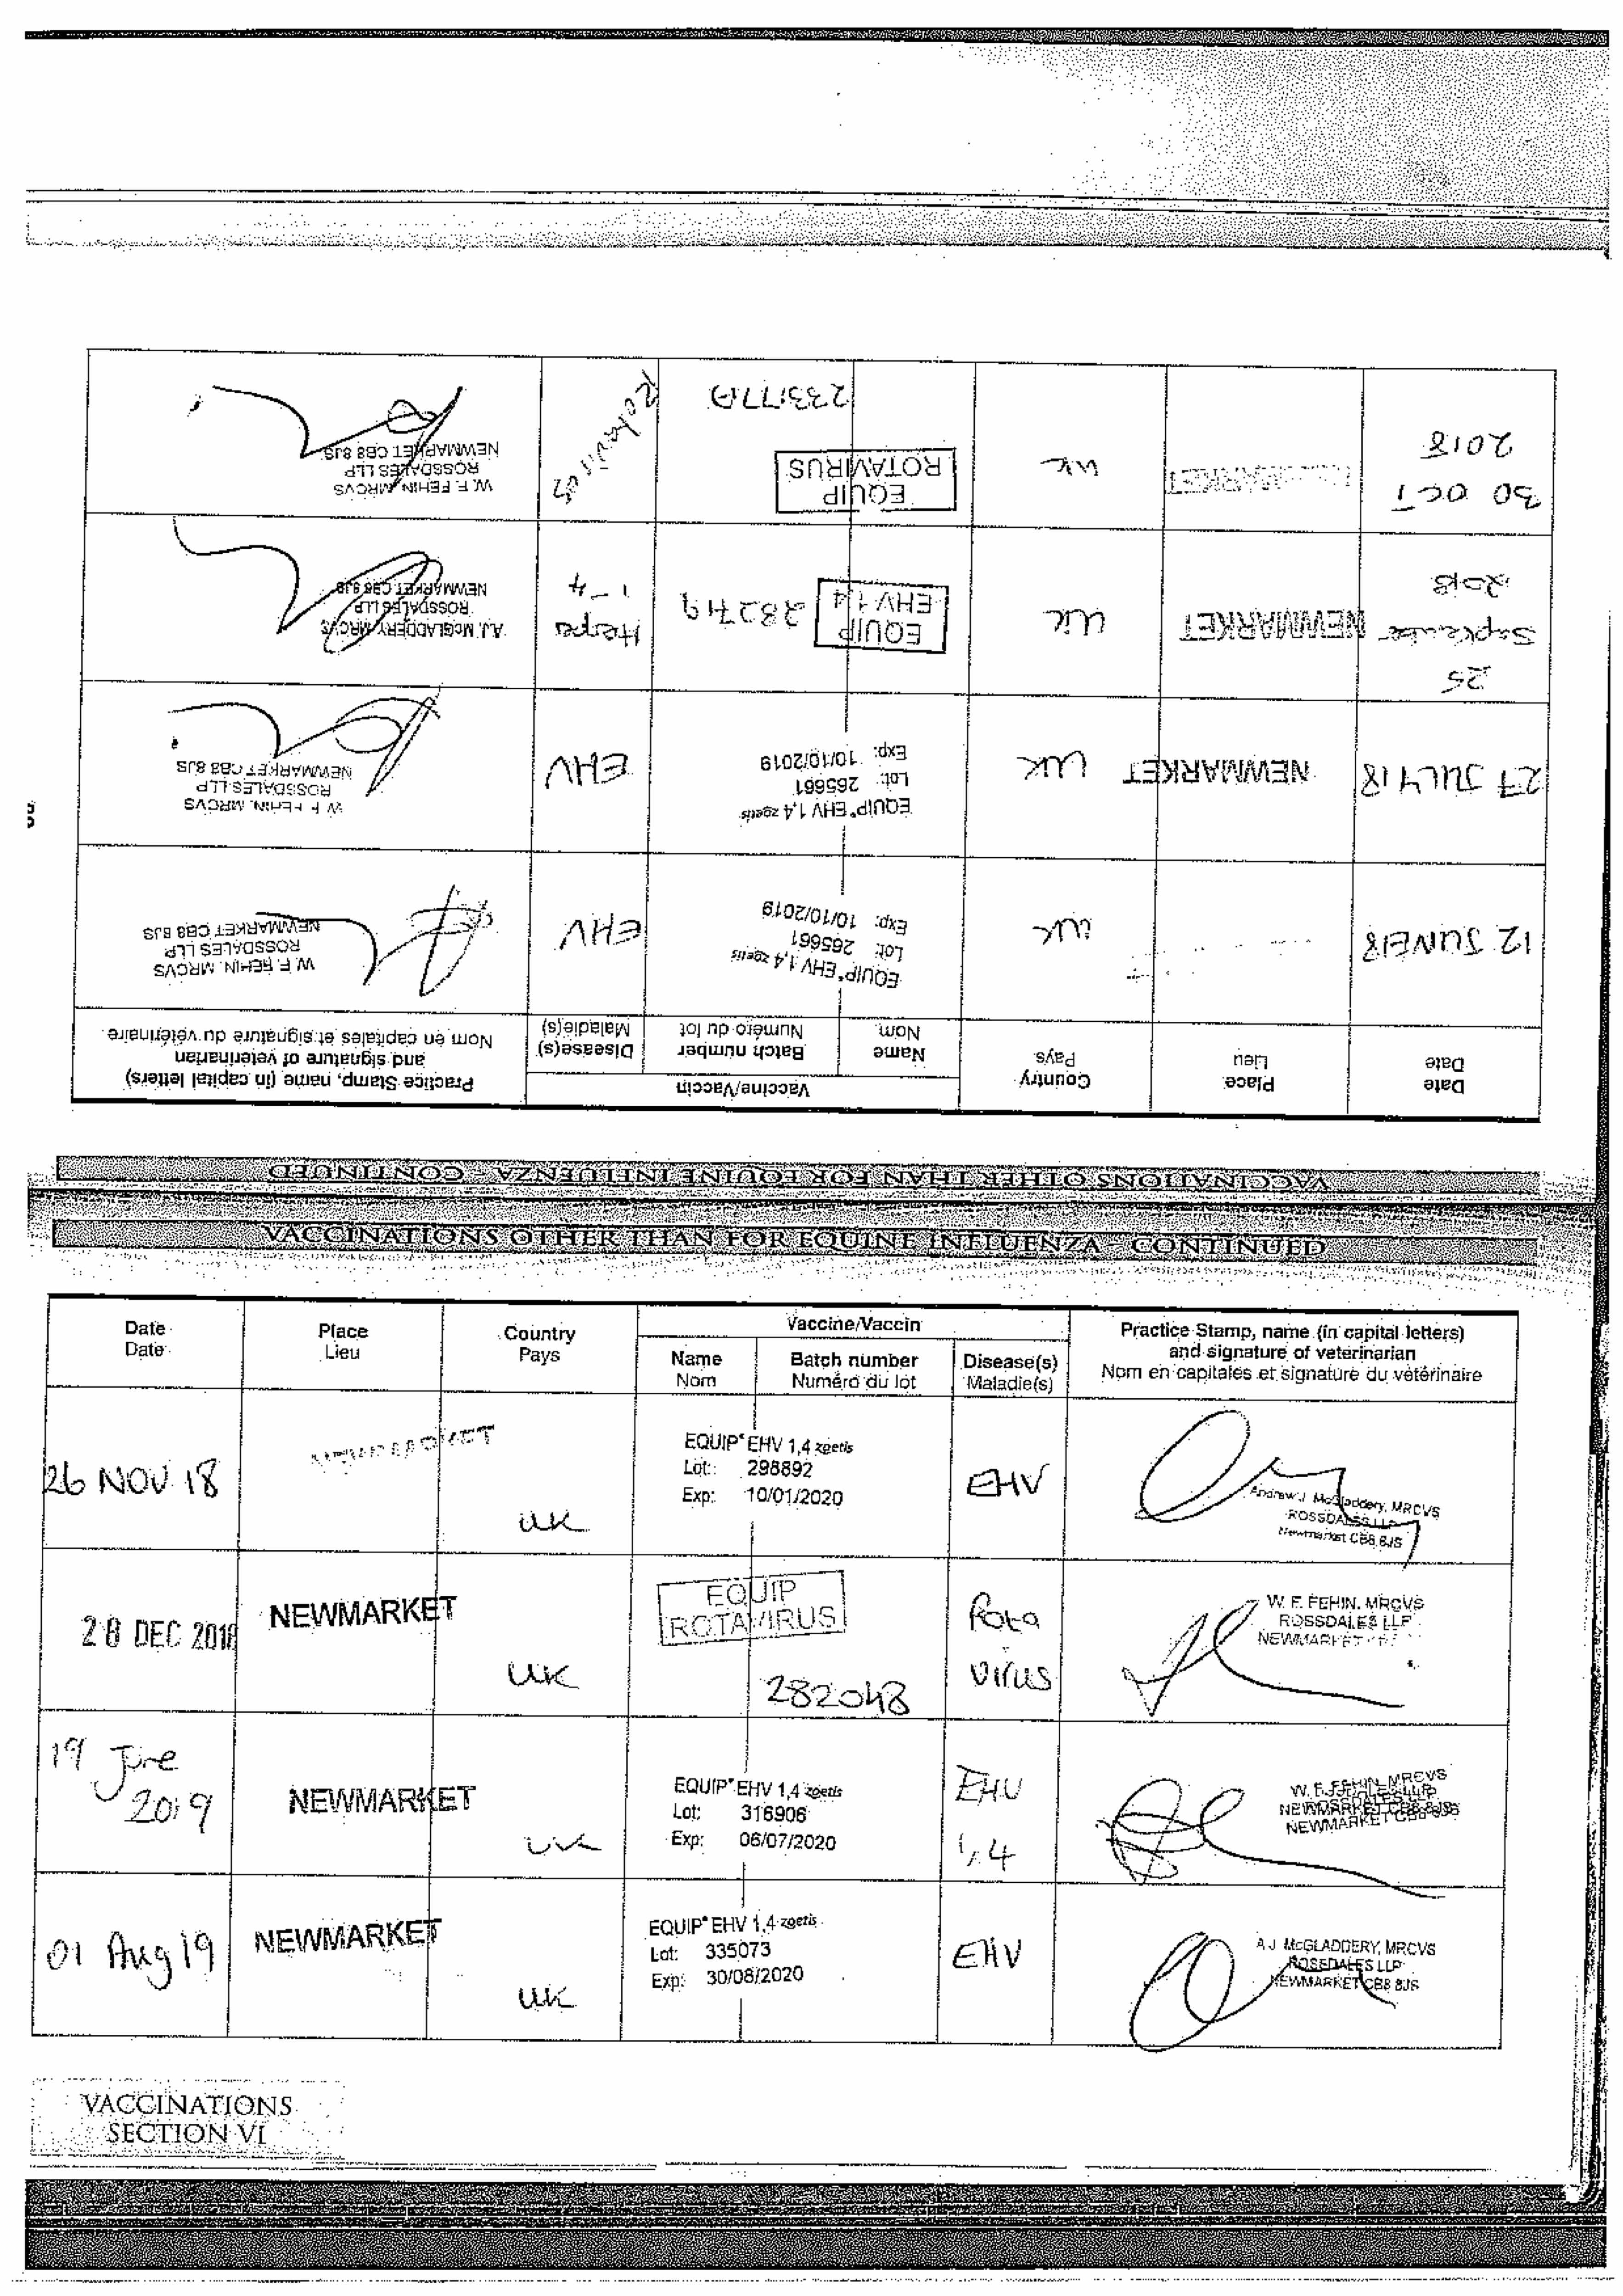 VACCINATIONS OTHER THAN FOR EQUINE INFLUENZA - CONTINUED
Date
Date
Place
Lieu
Country
Pays
Vaccine/Vaccin
Name
Nom
Batch number
Numéro du lot
Disease(s)
Maladie(s)
Practice Stamp, name (in capital letters)
and signature of veterinarian
Nom en capitales et signature du vétérinaire
12 JUNE 18
UK
EQUIP® EHV 1,4 zoetis
Lot: 265661
Exp: 10/10/2019
EHV
W. F. FEHIN, MRCVS
ROSSDALES LLP
NEWMARKET CB8 8JS
27 JULY 18
NEWMARKET
UK
EQUIP® EHV 1,4 zoetis
Lot: 265661
Exp: 10/10/2019
EHV
W. F. FEHIN, MRCVS
ROSSDALES LLP
NEWMARKET CB8 8JS
25
September
2018
NEWMARKET
UK
EQUIP
EHV 1,4
282719
Herpes
1-4
A.J. McGLADDERY MRCVS
ROSSDALES LLP
NEWMARKET CB8 8JS
30 OCT
2018
NEWMARKET
UK
EQUIP
ROTAVIRUS
Rotavirus
W. F. FEHIN, MRCVS
ROSSDALES LLP
NEWMARKET CB8 8JS
VACCINATIONS OTHER THAN FOR EQUINE INFLUENZA - CONTINUED
Date
Date
Place
Lieu
Country
Pays
Vaccine/Vaccin
Name
Nom
Batch number
Numéro du lot
Disease(s)
Maladie(s)
Practice Stamp, name (in capital letters)
and signature of veterinarian
Nom en capitales et signature du vétérinaire
26 NOV 18
NEWMARKET
UK
EQUIP® EHV 1,4 zoetis
Lot: 298892
Exp: 10/01/2020
EHV
Andrew J. McGladdery, MRCVS
ROSSDALES LLP
Newmarket CB8 8JS
28 DEC 2018
NEWMARKET
UK
EQUIP
ROTAVIRUS
282048
Rota
virus
W. F. FEHIN, MRCVS
ROSSDALES LLP
NEWMARKET
19 June
2019
NEWMARKET
UK
EQUIP® EHV 1,4 zoetis
Lot: 316906
Exp: 06/07/2020
EHV
1,4
W. F. FEHIN, MRCVS
ROSSDALES LLP
NEWMARKET CB8 8JS
NEWMARKET CB8 8JS
01 Aug 19
NEWMARKET
UK
EQUIP® EHV 1,4 zoetis
Lot: 335073
Exp: 30/08/2020
EHV
A J McGLADDERY, MRCVS
ROSSDALES LLP
NEWMARKET CB8 8JS
VACCINATIONS
SECTION VI